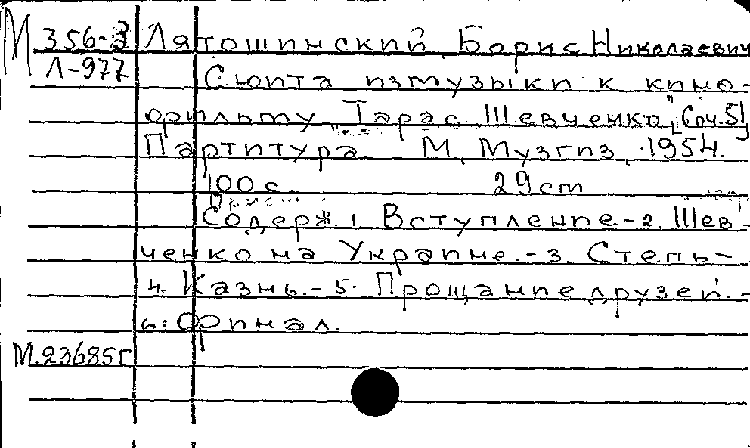 М 356-3 Лятошинский, Борис Николаевич
Л-977 Сюита из музыки к кино-
фильму "Тарас Шевченко" [Соч. 51]
Партитура. М., Музгиз, 1954.
100 с. 29 cm
Содерж: 1. Вступление.-2. Шев-
ченко на Украине.-3. Степь-
4. Казнь.-5. Прощание друзей.-
6: Финал.
М.23685г